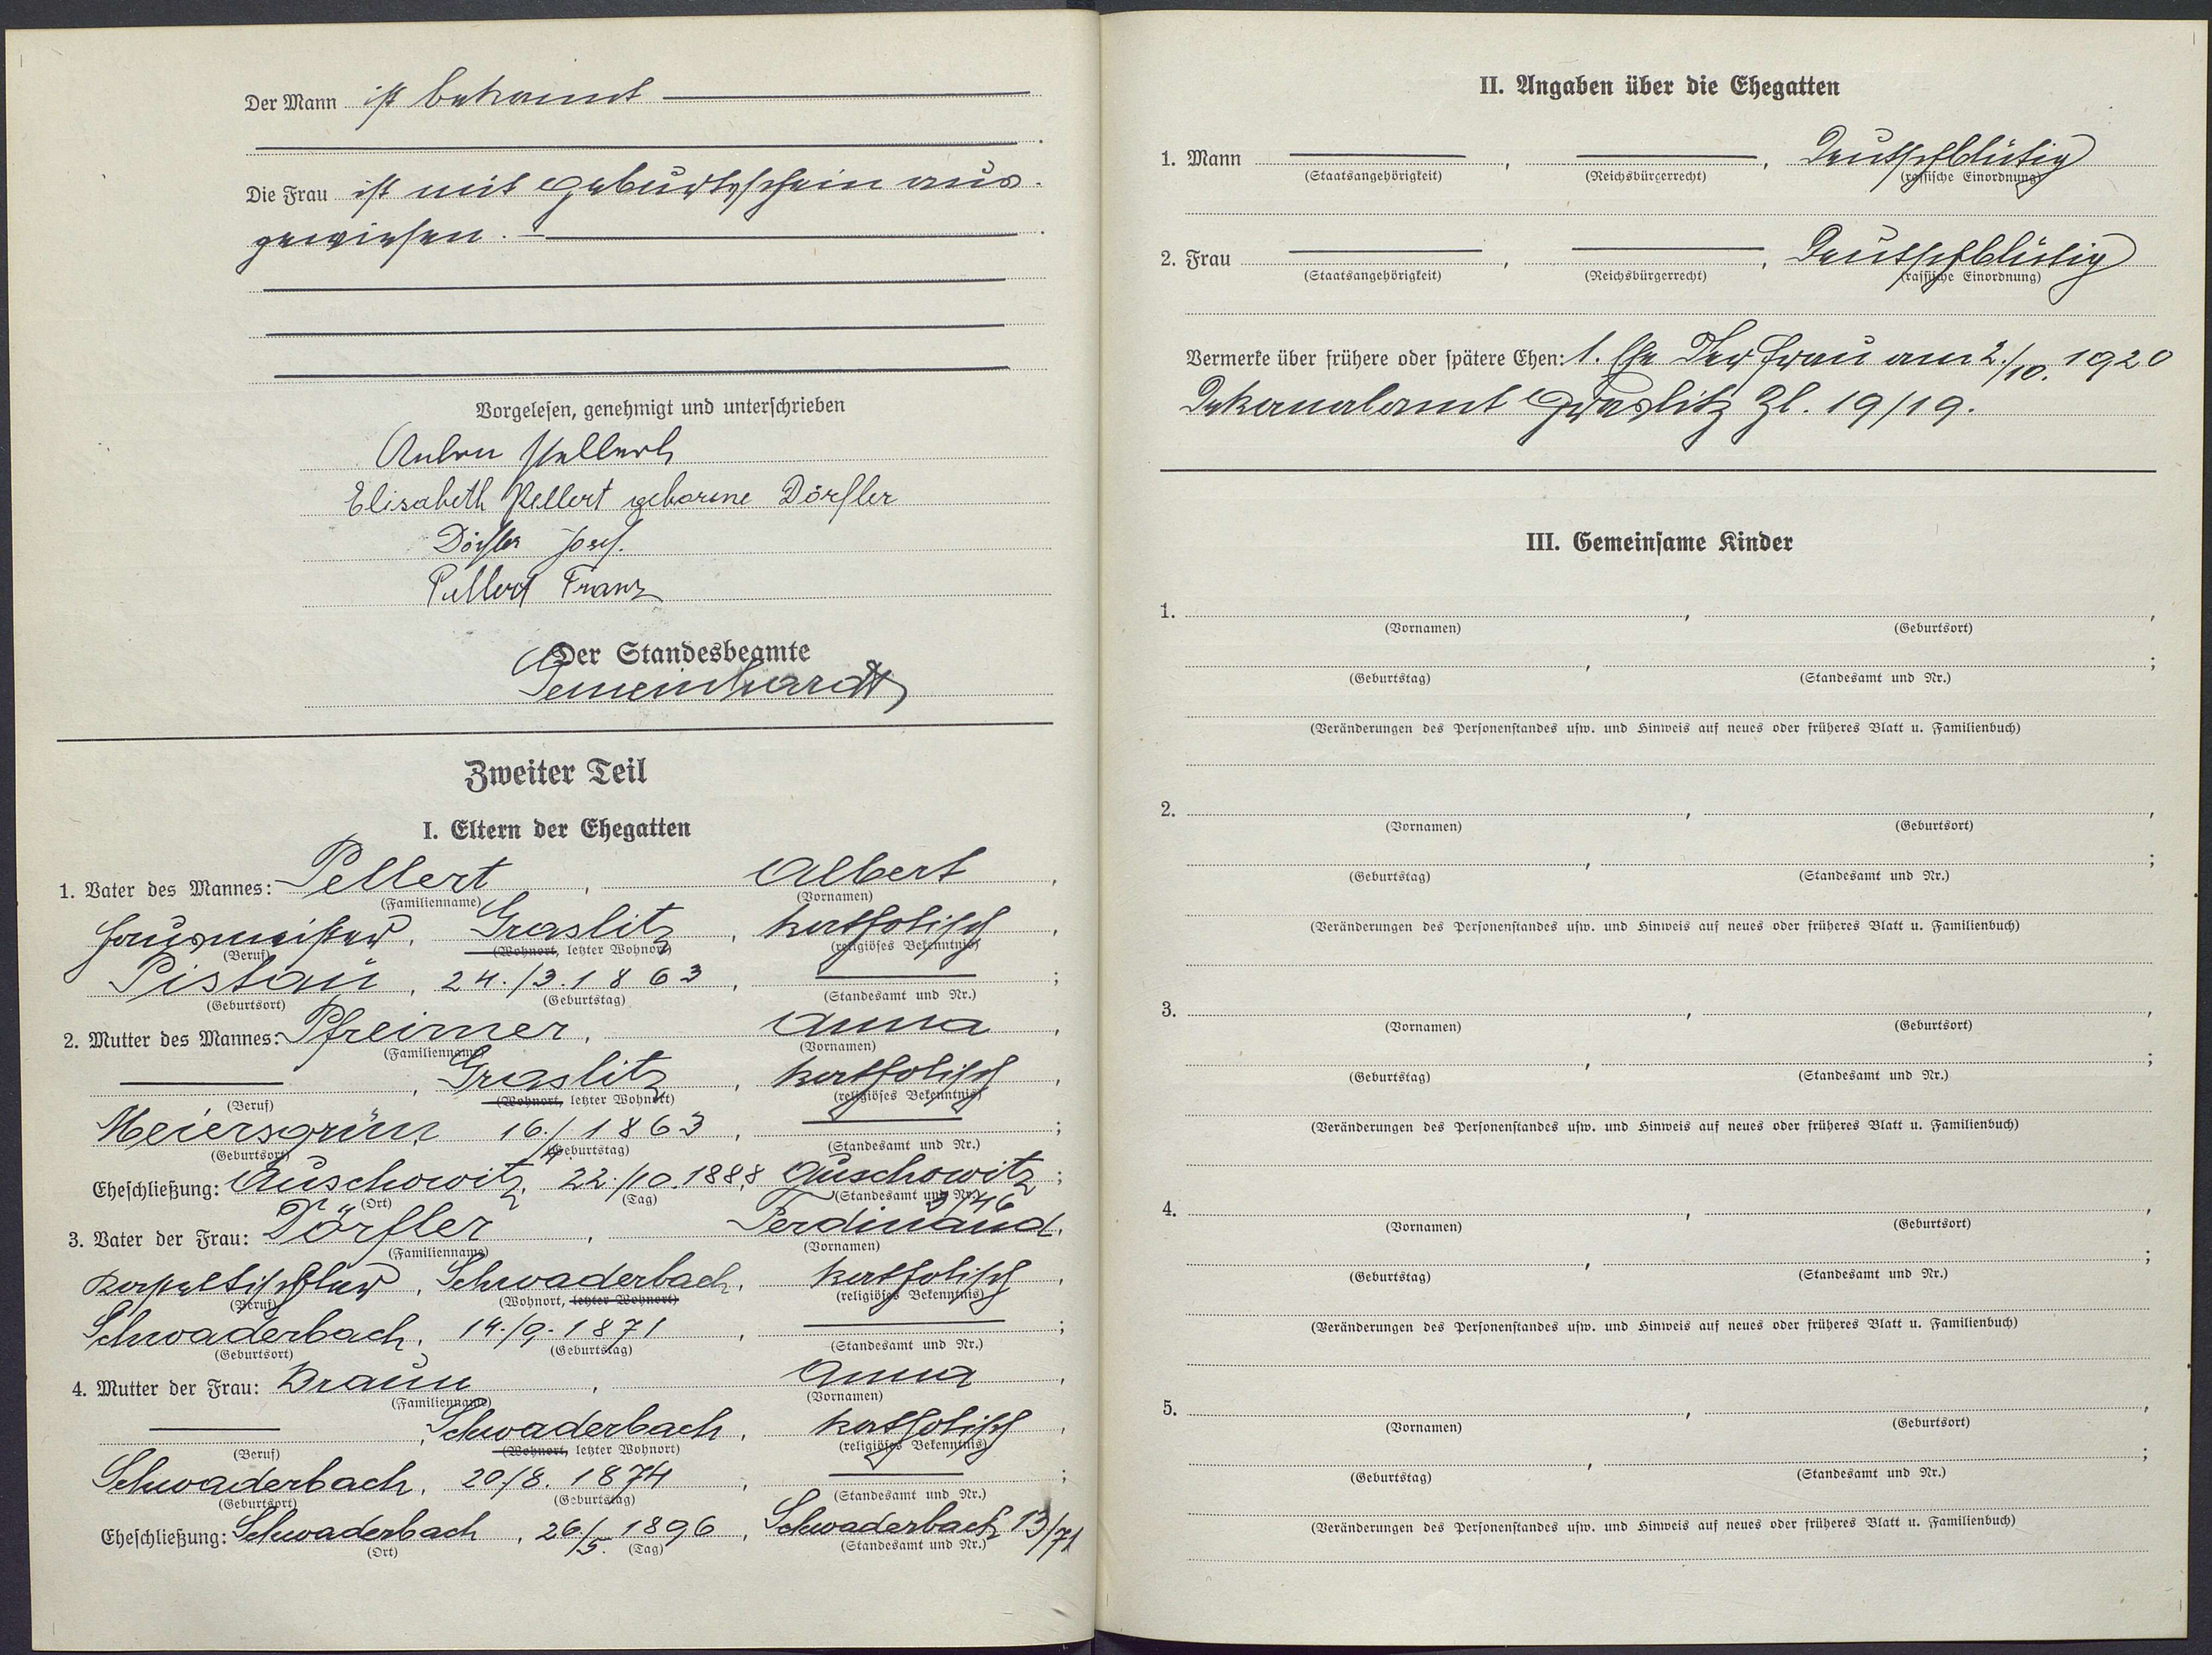 Der Mann ist bekannt
Die Frau ist mit Geburtsschein aus-
gewiesen.
Vorgelesen, genehmigt und unterschrieben
Anton Pellert
Elisabeth Pellert geborene Dörfler
Dörfler Josef.
Pellert Franz
Der Standesbeamte
Gemeinhardt
Zweiter Teil
I. Eltern der Ehegatten
1. Vater des Mannes: Pellert, Albert,
(Familienname) (Vornamen)
Hausmeister, Graslitz, katholisch,
(Beruf) (Wohnort, letzter Wohnort) (religiöses Bekenntnis)
Pistau, 24./3.1863,
(Geburtsort) (Geburtstag) (Standesamt und Nr.)
2. Mutter des Mannes: Pfreimer, Anna,
(Familienname) (Vornamen)
Graslitz, katholisch,
(Beruf) (Wohnort, letzter Wohnort) (religiöses Bekenntnis)
Meiersgrün, 16./4. 1863,
(Geburtsort) (Geburtstag) (Standesamt und Nr.)
Eheschließung: Auschowitz, 22./10.1888, Auschowitz;
(Ort) (Tag) (Standesamt und Nr.) 3/46
3. Vater der Frau: Dörfler, Ferdinand,
(Familienname) (Vornamen)
Schwaderbach, katholisch,
(Beruf) (Wohnort, letzter Wohnort) (religiöses Bekenntnis)
Schwaderbach, 14./9.1871,
(Geburtsort) (Geburtstag) (Standesamt und Nr.)
4. Mutter der Frau: Braun, Anna,
(Familienname) (Vornamen)
Schwaderbach, katholisch,
(Beruf) (Wohnort, letzter Wohnort) (religiöses Bekenntnis)
Schwaderbach, 20./8. 1874,
(Geburtsort) (Geburtstag) (Standesamt und Nr.)
Eheschließung: Schwaderbach, 26./5. 1896, Schwaderbach 13/71
(Ort) (Tag) (Standesamt und Nr.)
II. Angaben über die Ehegatten
1. Mann , , Deutschblütig
(Staatsangehörigkeit) (Reichsbürgerrecht) (rassische Einordnung)
2. Frau , , Deutschblütig
(Staatsangehörigkeit) (Reichsbürgerrecht) (rassische Einordnung)
Vermerke über frühere oder spätere Ehen: 1. Ehe der Frau am 2./10. 1920
Dekanalamt Graslitz Zl. 19/19.
III. Gemeinsame Kinder
1. , ,
(Vornamen) (Geburtsort)
, ;
(Geburtstag) (Standesamt und Nr.)
(Veränderungen des Personenstandes usw. und Hinweis auf neues oder früheres Blatt u. Familienbuch)
2. , ,
(Vornamen) (Geburtsort)
, ;
(Geburtstag) (Standesamt und Nr.)
(Veränderungen des Personenstandes usw. und Hinweis auf neues oder früheres Blatt u. Familienbuch)
3. , ,
(Vornamen) (Geburtsort)
, ;
(Geburtstag) (Standesamt und Nr.)
(Veränderungen des Personenstandes usw. und Hinweis auf neues oder früheres Blatt u. Familienbuch)
4. , ,
(Vornamen) (Geburtsort)
, ;
(Geburtstag) (Standesamt und Nr.)
(Veränderungen des Personenstandes usw. und Hinweis auf neues oder früheres Blatt u. Familienbuch)
5. , ,
(Vornamen) (Geburtsort)
, ;
(Geburtstag) (Standesamt und Nr.)
(Veränderungen des Personenstandes usw. und Hinweis auf neues oder früheres Blatt u. Familienbuch)